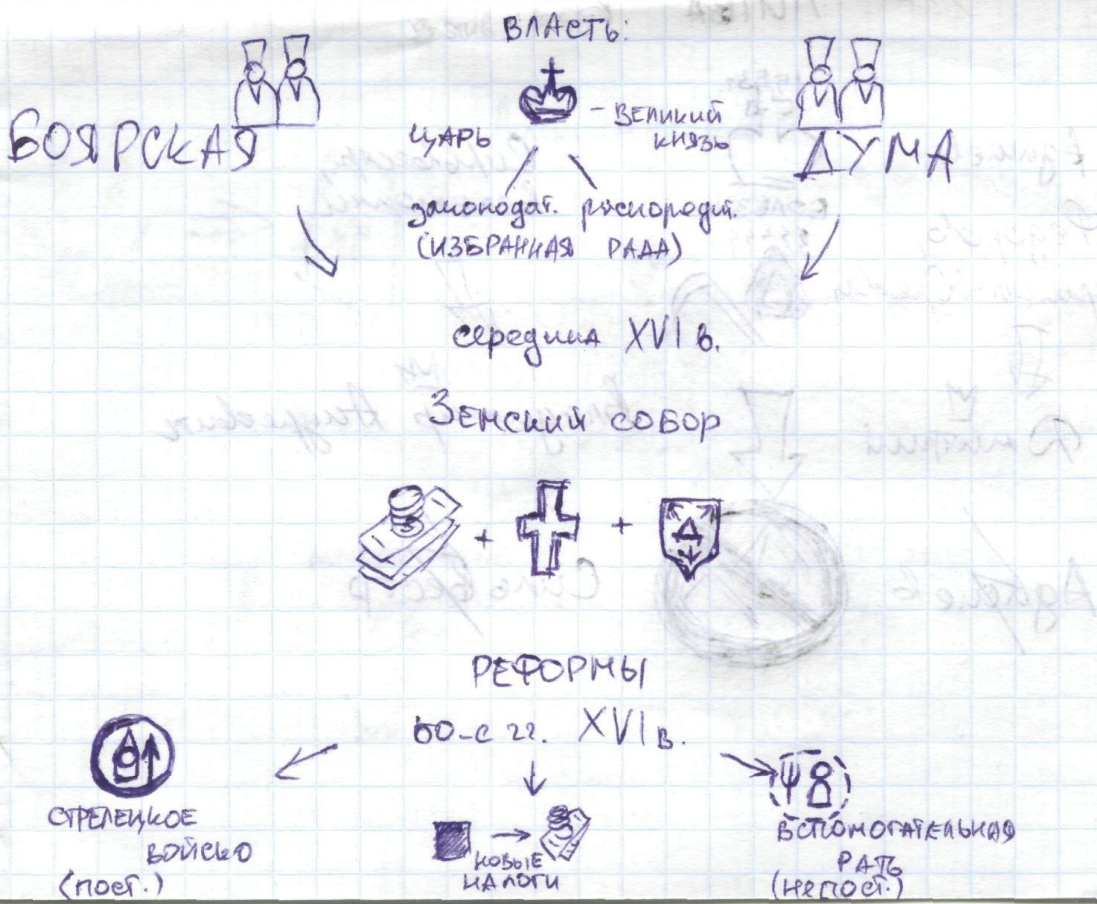 ВЛАСТЬ:
БОЯРСКАЯ
ДУМА
ЦАРЬ
- ВЕЛИКИЙ
КНЯЗЬ
законодат. распорядит.
(ИЗБРАННАЯ РАДА)
середина XVI в.
Земский собор
+ +
Д
РЕФОРМЫ
50-е гг. XVI в.
СТРЕЛЕЦКОЕ
ВОЙСКО
(пост.)
НОВЫЕ
НАЛОГИ
ВСПОМОГАТЕЛЬНАЯ
РАТЬ
(непост.)